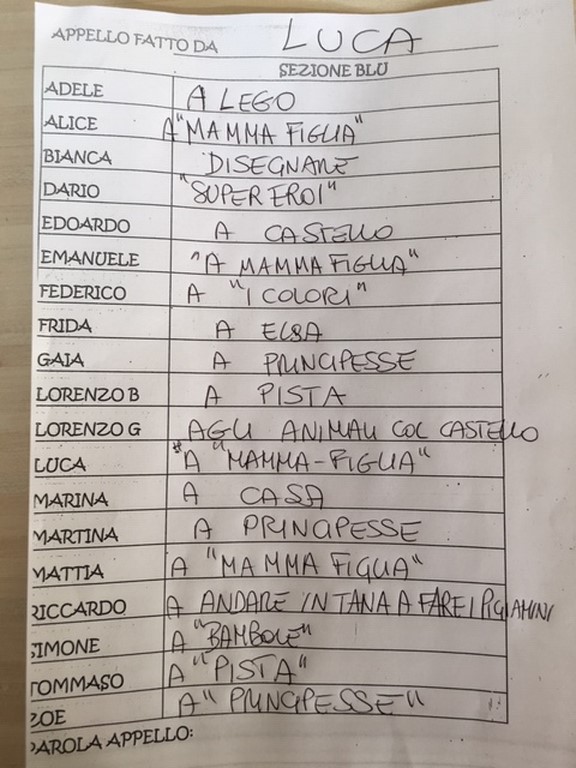 APPELLO FATTO DA LUCA
SEZIONE BLU
ADELE A LEGO
ALICE A "MAMMA FIGLIA"
BIANCA DISEGNARE
DARIO "SUPER EROI"
EDOARDO A CASTELLO
EMANUELE "A MAMMA FIGLIA"
FEDERICO A "I COLORI"
FRIDA A ELSA
GAIA A PRINCIPESSE
LORENZO B A PISTA
LORENZO G AGLI ANIMALI COL CASTELLO
LUCA "A "MAMMA-FIGLIA"
MARINA A CASA
MARTINA A PRINCIPESSE
MATTIA A "MAMMA FIGLIA"
RICCARDO A ANDARE IN TANA A FARE I PIGIAMINI
SIMONE A "BAMBOLE"
TOMMASO A "PISTA"
ZOE A "PRINCIPESSE"
PAROLA APPELLO: